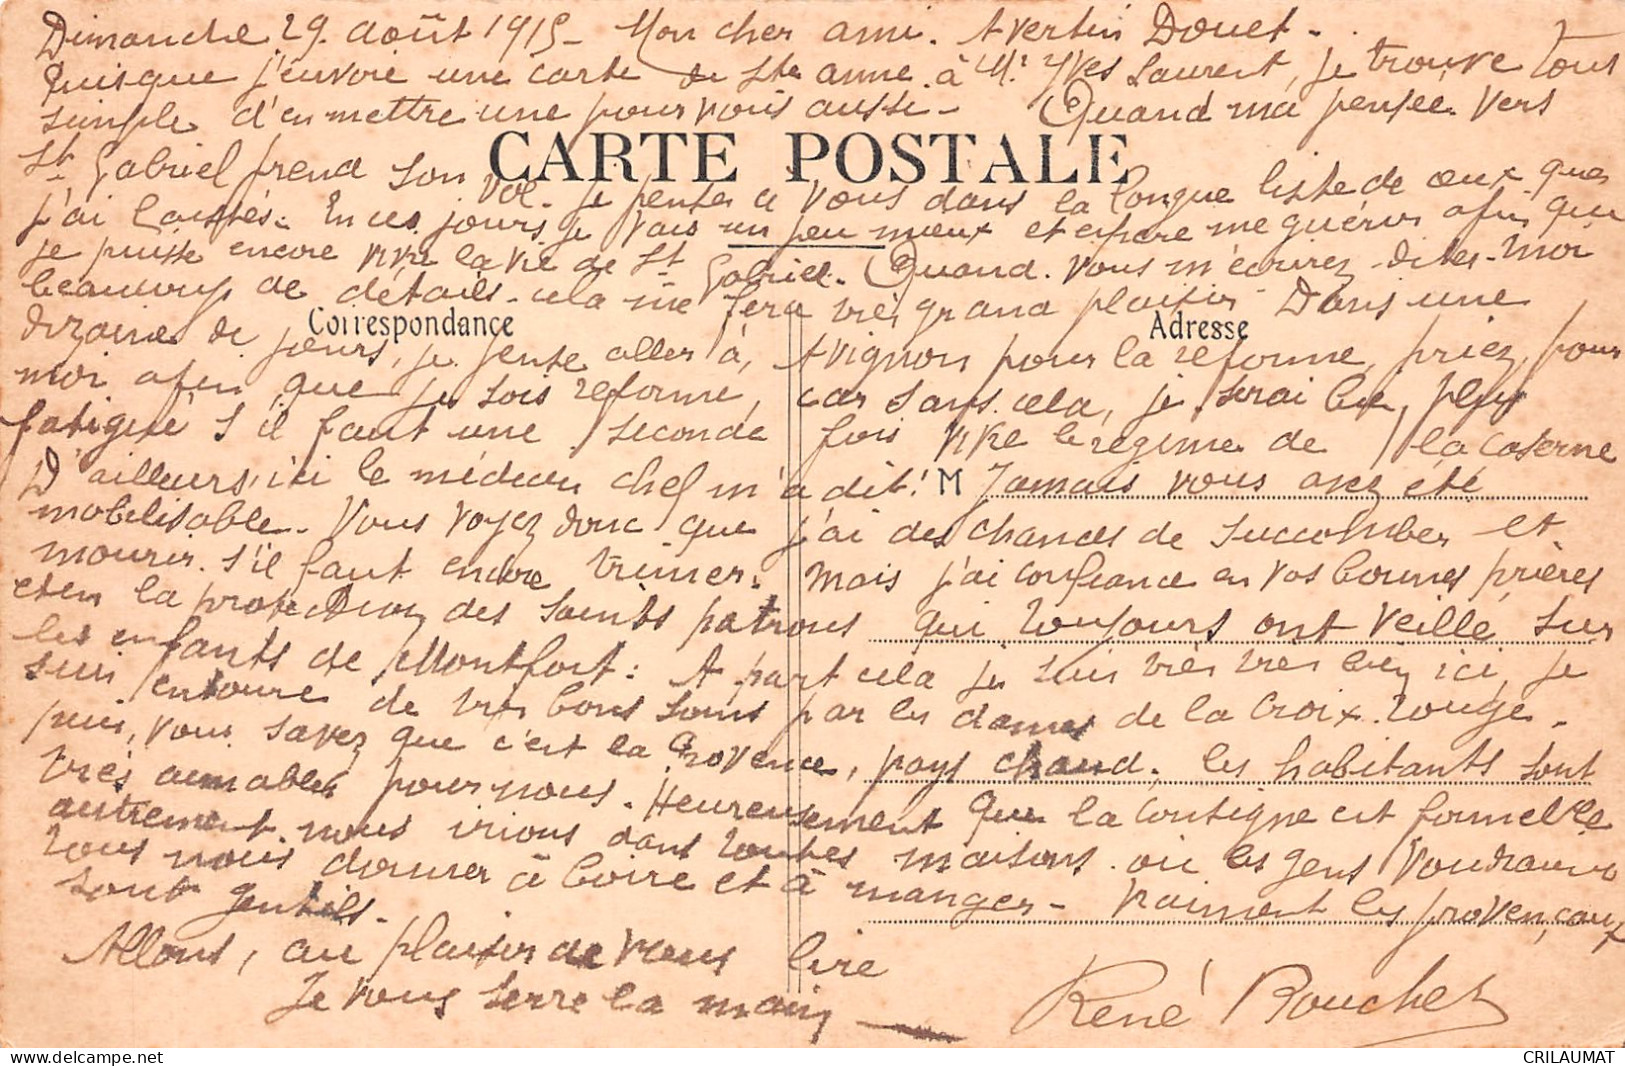 Dimanche 29. août 1915 – Mon cher ami. Avertin Douet –
Puisque j'envoie une carte de Ste anne à Mr Yves Laurent, je trouve tout
simple d'en mettre une pour vous aussi – Quand ma pensée vers
CARTE POSTALE
St Gabriel prend son vol – je pense à vous dans la longue liste de ceux que
j'ai laissés. En ces jours, je vais un peu mieux et espère me guérir afin que
je puisse encore vivre la vie de St Gabriel. Quand vous m'écrirez – dites-moi
beaucoup de détails – cela me fera très grand plaisir – Dans une
Correspondance Adresse
dizaine de jours, je pense aller à Avignon pour la réforme, priez pour
moi afin que je sois réformé, car sans cela, je serai bien plus
fatigué s'il faut une seconde fois vivre le régime de la caserne
D'ailleurs, ici le médecin chef m'a dit! M Jamais vous avez été
mobilisable. Vous voyez donc que j'ai des chances de succomber et
mourir s'il faut encore trimer. Mais j'ai confiance en vos bonnes prières
et en la protection des saints patrons qui toujours ont veillé sur
les enfants de Montfort: A part cela je suis très très bien ici, je
suis entouré de très bons soins par les dames de la Croix-rouge –
puis, vous savez que c'est la Provence, pays chaud. les habitants sont
très aimables pour nous. Heureusement que la consigne est formelle
autrement nous irions dans toutes maisons où les gens voudraient
tous nous donner à boire et à manger – Vraiment les provençaux
sont gentils –
Allons, au plaisir de vous lire
Je vous serre la main
René Bouchet
CRILAUMAT